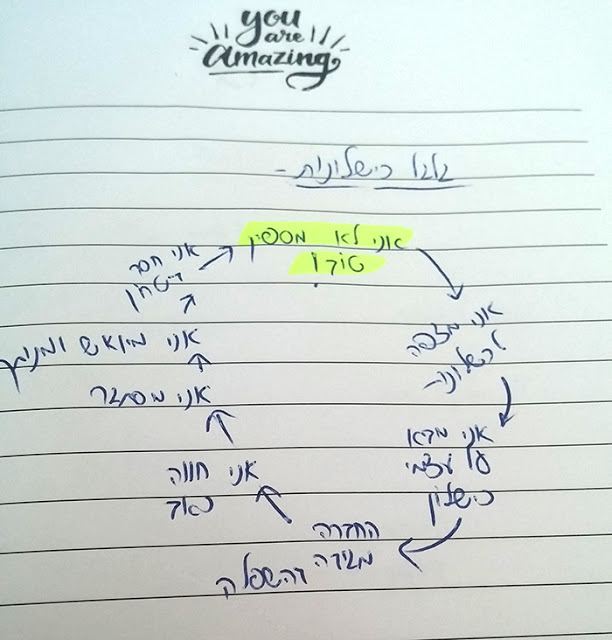 you
are
Amazing
גלגל כישלונות -
אני לא מספיק
טוב
אני מצפה
אני מביא
על עצמי
כישלון
החברה
מגיבה בהשפלה
אני חווה
כאב
אני מסתגר
אני מיואש
אני חסר
ביטחון